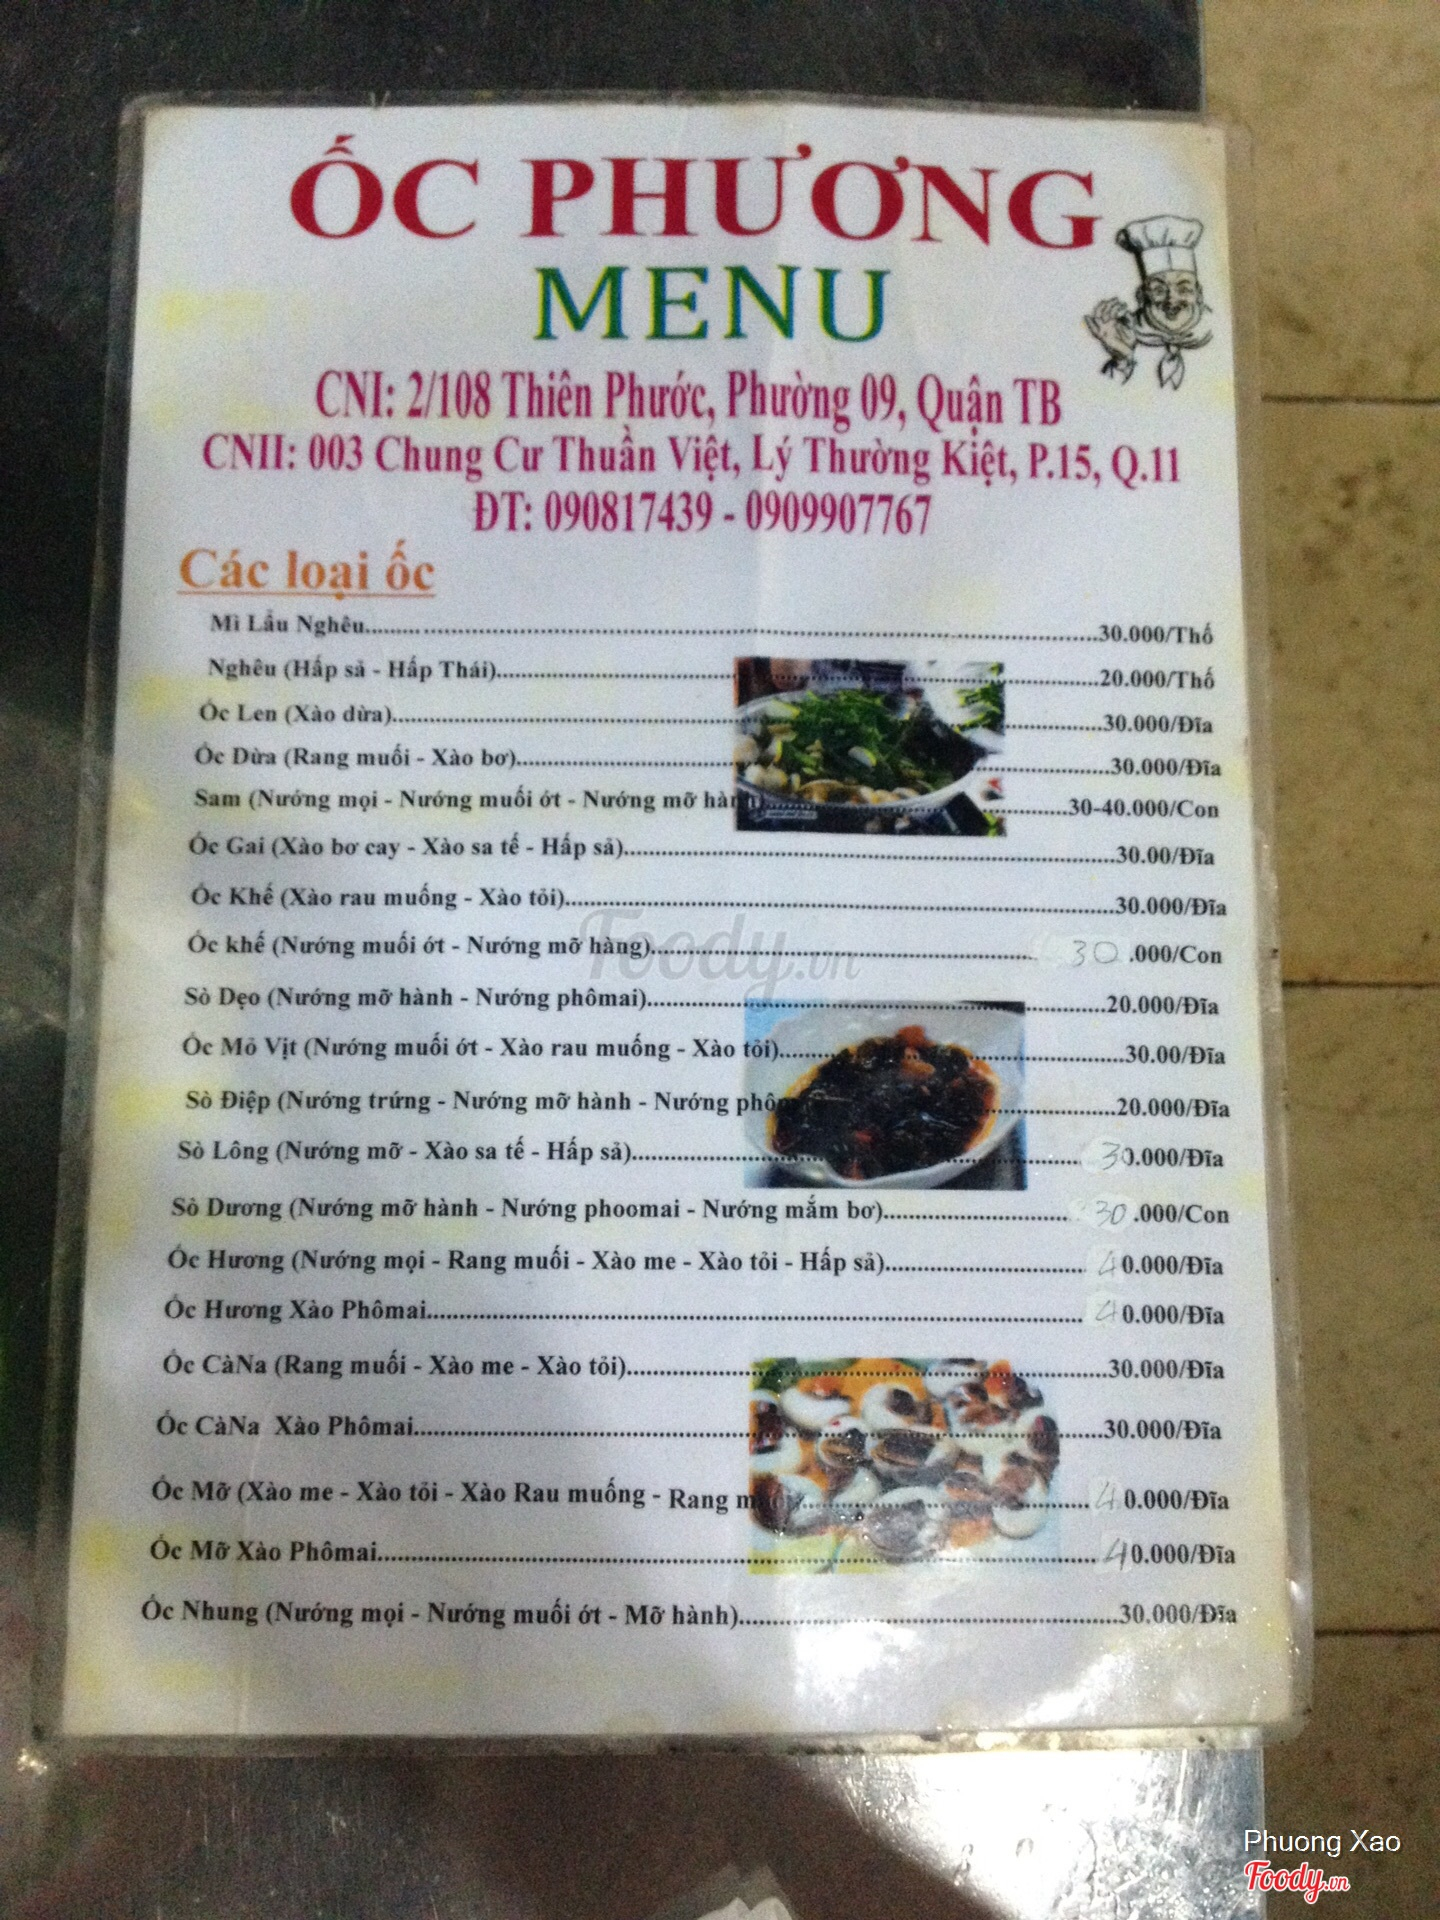 ỐC PHƯƠNG
MENU
CNI: 2/108 Thiên Phước, Phường 09, Quận TB
CNII: 003 Chung Cư Thuần Việt, Lý Thường Kiệt, P.15, Q.11
ĐT: 090817439 - 0909907767
Các loại ốc
Mì Lẩu Nghêu..........30.000/Thố
Nghêu (Hấp sả - Hấp Thái)..........20.000/Thố
Ốc Len (Xào dừa)..........30.000/Đĩa
Ốc Dừa (Rang muối - Xào bơ)..........30.000/Đĩa
Sam (Nướng mọi - Nướng muối ớt - Nướng mỡ hành)..........30-40.000/Con
Ốc Gai (Xào bơ cay - Xào sa tế - Hấp sả)..........30.00/Đĩa
Ốc Khế (Xào rau muống - Xào tỏi)..........30.000/Đĩa
Ốc khế (Nướng muối ớt - Nướng mỡ hàng)..........30.000/Con
Sò Dẹo (Nướng mỡ hành - Nướng phômai)..........20.000/Đĩa
Ốc Mỏ Vịt (Nướng muối ớt - Xào rau muống - Xào tỏi)..........30.00/Đĩa
Sò Điệp (Nướng trứng - Nướng mỡ hành - Nướng ..........20.000/Đĩa
Sò Lông (Nướng mỡ - Xào sa tế - Hấp sả)..........30.000/Đĩa
Sò Dương (Nướng mỡ hành - Nướng phoomai - Nướng mắm bơ)..........30.000/Con
Ốc Hương (Nướng mọi - Rang muối - Xào me - Xào tỏi - Hấp sả)..........40.000/Đĩa
Ốc Hương Xào Phômai..........40.000/Đĩa
Ốc CàNa (Rang muối - Xào me - Xào tỏi)..........30.000/Đĩa
Ốc CàNa Xào Phômai..........30.000/Đĩa
Ốc Mỡ (Xào me - Xào tỏi - Xào Rau muống - Rang ..........40.000/Đĩa
Ốc Mỡ Xào Phômai..........40.000/Đĩa
Ốc Nhung (Nướng mọi - Nướng muối ớt - Mỡ hành)..........30.000/Đĩa
Foody.vn
Phuong Xao
Foody.vn